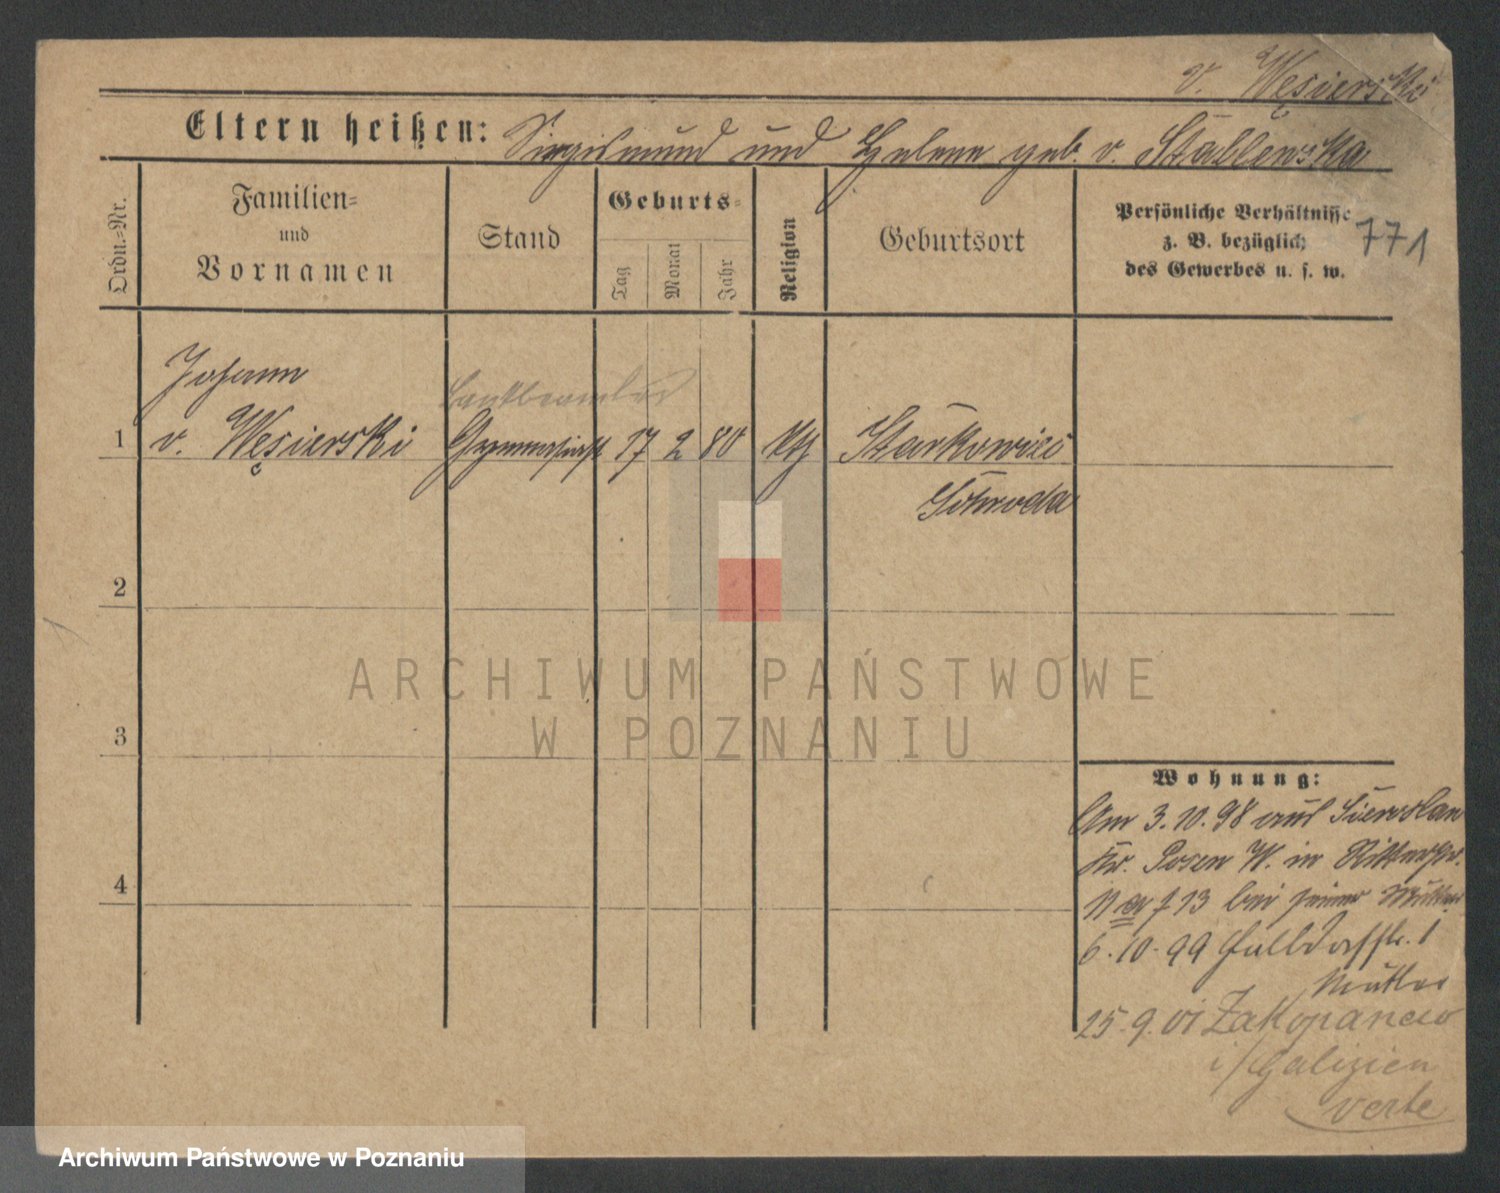 v. Węsierski
Eltern heißen: Siegismund und Helene geb. v. Stablewska
Ordn.-Nr.
Familien-
und
Vornamen
Stand
Geburts-
Tag
Monat
Jahr
Religion
Geburtsort
Persönliche Verhältnisse
z. B. bezüglich
des Gewerbes u. s. w.
771
Johann
Bankbeamter
1 v. Węsierski Gymnasiast 17 2 80 kth
Schroda
2
3
4
Wohnung:
Am 3.10.98 aus
Kr. Posen W. in Ritterstr.
13 bei seiner Mutter
6.10.99 Halbdorfstr. 1
Mutter
25.9.01 Zakopance
i/Galizien
verte
ARCHIWUM PAŃSTWOWE
W POZNANIU
Archiwum Państwowe w Poznaniu